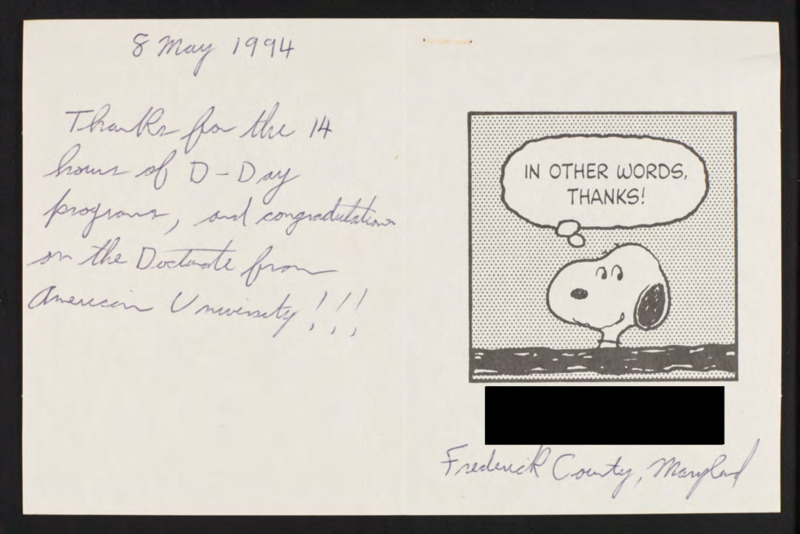 8 May 1994
Thanks for the 14
hours of D-Day
programs, and congradulations
on the Doctorate from
American University!!!
IN OTHER WORDS,
THANKS!
Frederick County, Maryland